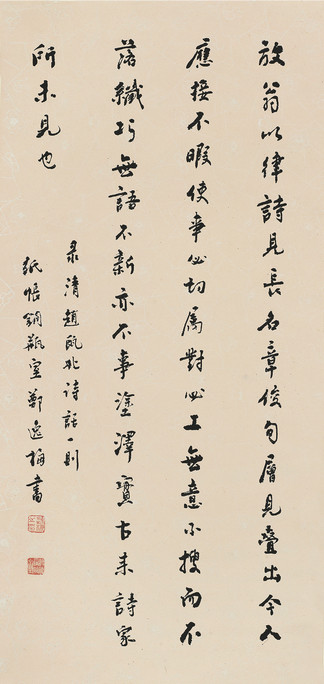 放翁以律詩見長名章俊句層見疊出令人
應接不暇使事必切屬對必工無意不搜而不
落纖巧無語不新亦不事塗澤實古来詩家
所未見也
录清趙甌北詩話一則
紙帳銅瓶室鄭逸梅書